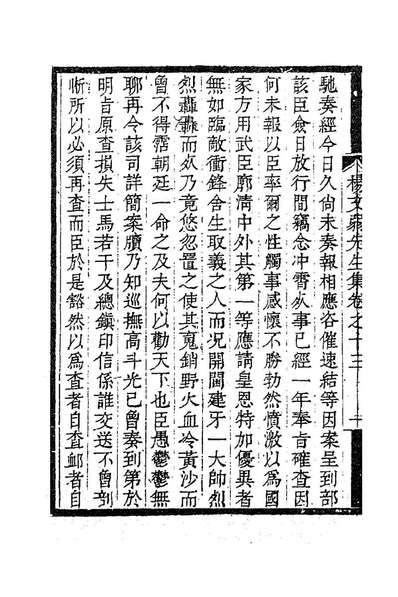 馳奏經今日久尙未奏報相應咨催速結等因案呈到部
該臣僉日放行間竊念冲霄从事已經一年奉肯確查因
何未報以臣率爾之性觸事感懷不勝勃然憤激以爲國
家方用武臣廓淸中外其第一等應請皇恩特加優異者
無如臨敵衝鋒舍生取義之人而况開閫建牙一大帥烈
烈轟轟而从乃竟悠忽置之使其寃銷野火血冷黃沙而
曾不得霑朝廷一命之及夫何以勸天下也臣愚鬱鬱無
聊再令該司詳簡案牘乃知巡撫高斗光已曾奏到第於
明旨原查損失士馬若干及總鎭印信係誰交送不曾剖
晣所以必須再查而臣於是豁然以爲查者自查衈者自
楊文弱先生集卷之十三